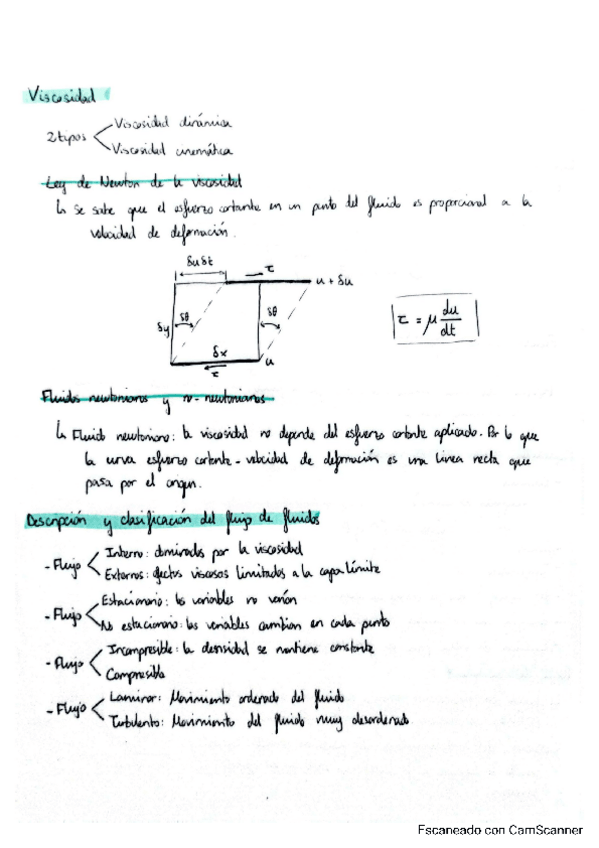 Viscosidad
2 tipos
Viscosidad dinámica
Viscosidad cinemática
Ley de Newton de la viscosidad
Se sabe que el esfuerzo cortante en un punto del fluido es proporcional a la
velocidad de deformación.
δu δt
τ
u + δu
δθ
δθ
δy
δx
u
τ
τ = μ du/dt
Fluidos newtonianos y no-newtonianos
Fluido newtoniano: la viscosidad no depende del esfuerzo cortante aplicado. Por lo que
la curva esfuerzo cortante - velocidad de deformación es una línea recta que
pasa por el origen.
Descripción y clasificación del flujo de fluidos
- Flujo
Interno: dominados por la viscosidad
Externos: efectos viscosos limitados a la capa límite
- Flujo
Estacionario: las variables no varían
No estacionario: las variables cambian en cada punto
- Flujo
Incompresible: la densidad se mantiene constante
Compresible
- Flujo
Laminar: Movimiento ordenado del fluido
Turbulento: Movimiento del fluido muy desordenado
Escaneado con CamScanner